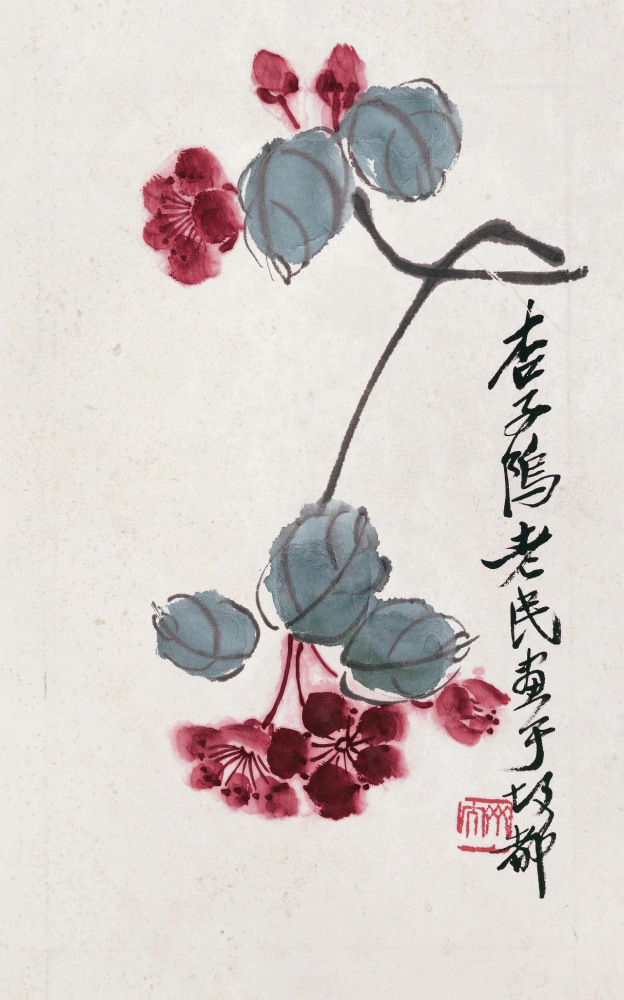 杏子隖老民画于故都